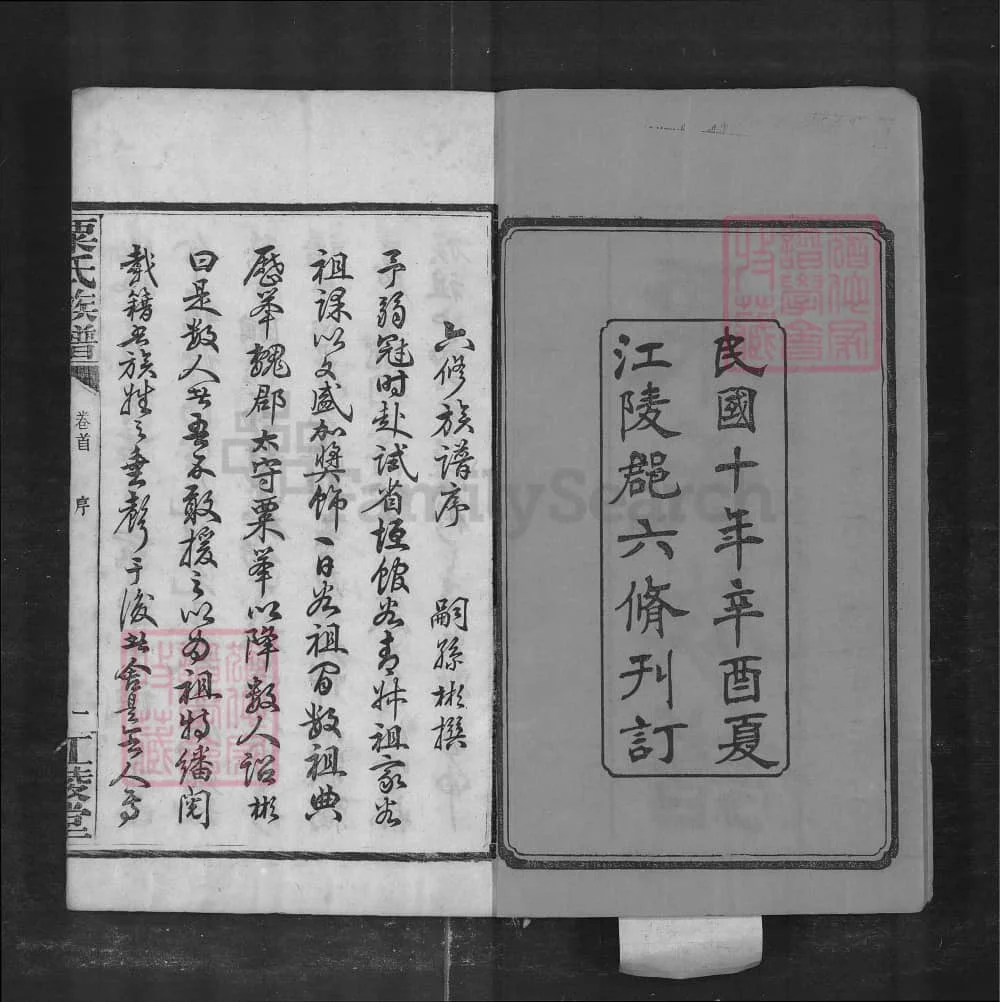 民國十年辛酉夏
江陵郡六脩刊訂
六修族譜序　嗣孫彬撰
予弱冠时赴试省垣馆谷青姘祖家谷
祖課以文盛加獎飾一日谷祖曾数祖典
歷举魏郡太守粟举以降数人詔彬
曰是数人者吾不敢援之以为祖特繙閱
載籍吾族姓之垂聲于後者舍是无人焉
粟氏族譜
卷首
序
一
江陵堂
FamilySearch